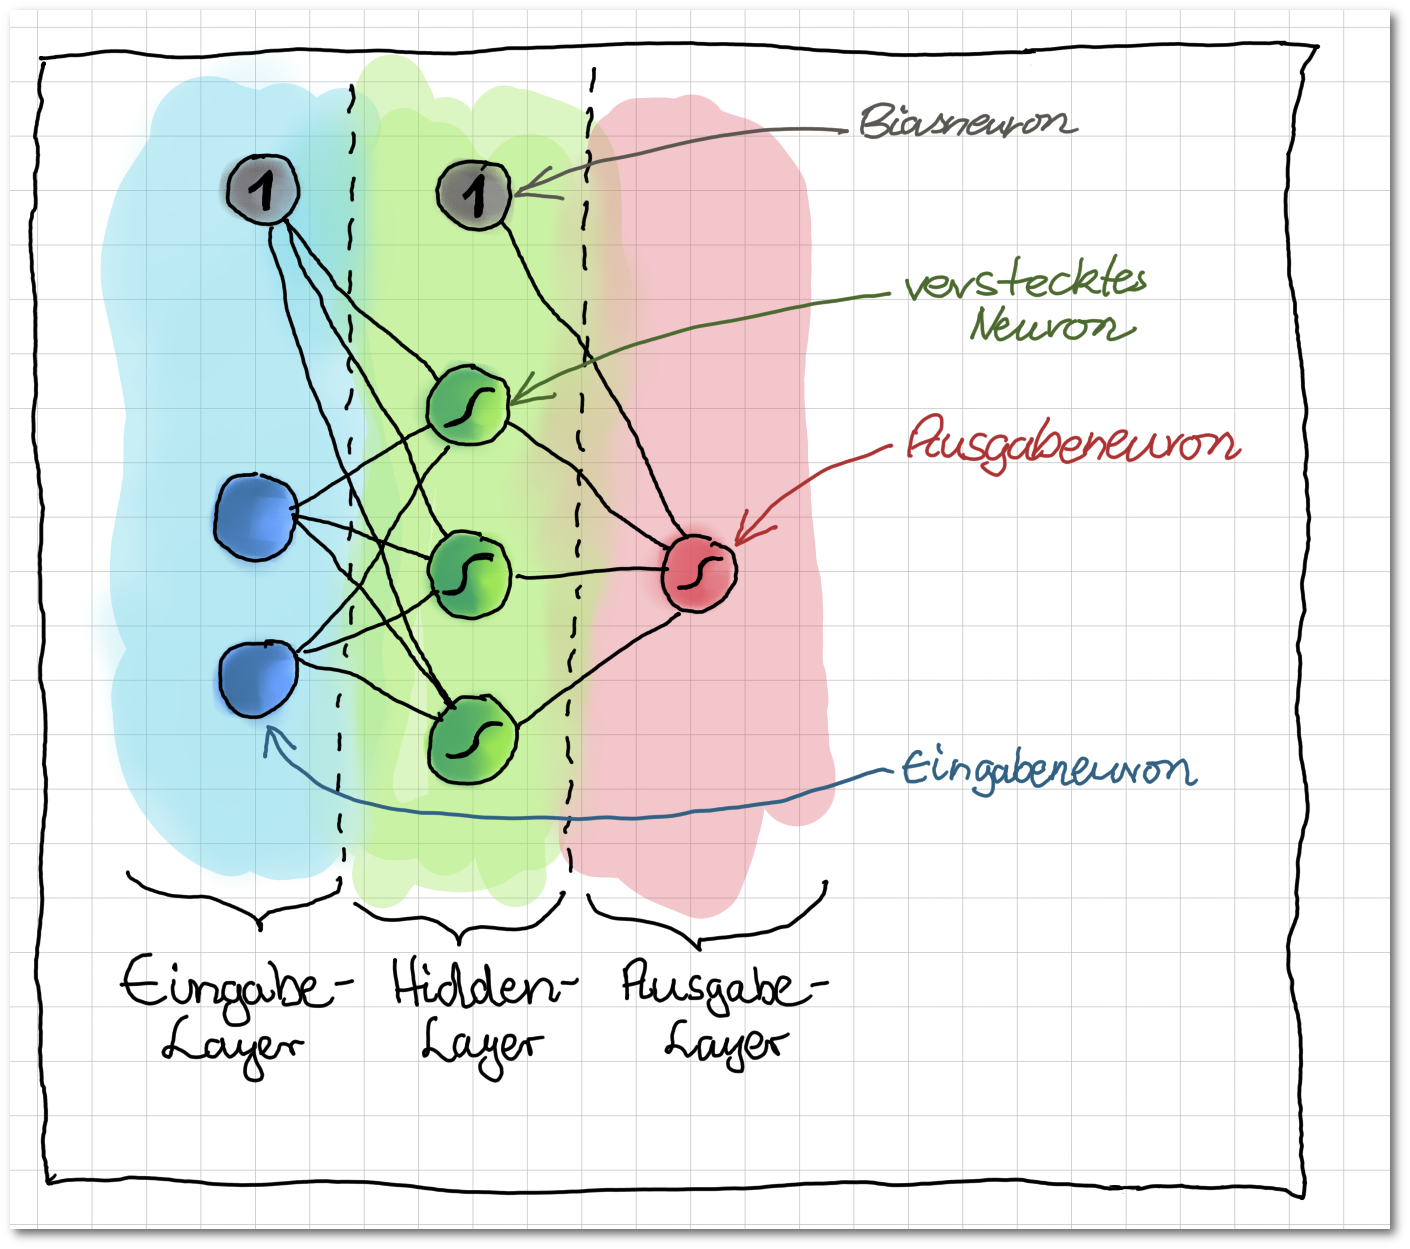 1
1
Biasneuron
verstecktes
Neuron
Ausgabeneuron
Eingabeneuron
Eingabe-
Layer
Hidden-
Layer
Ausgabe-
Layer